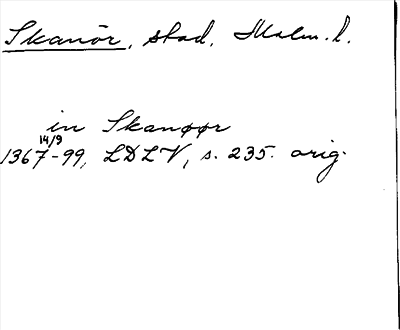 Skanör, stad, Malm. l.
in Skanøør
14/9
1367-99, LDLV, s. 235. orig.